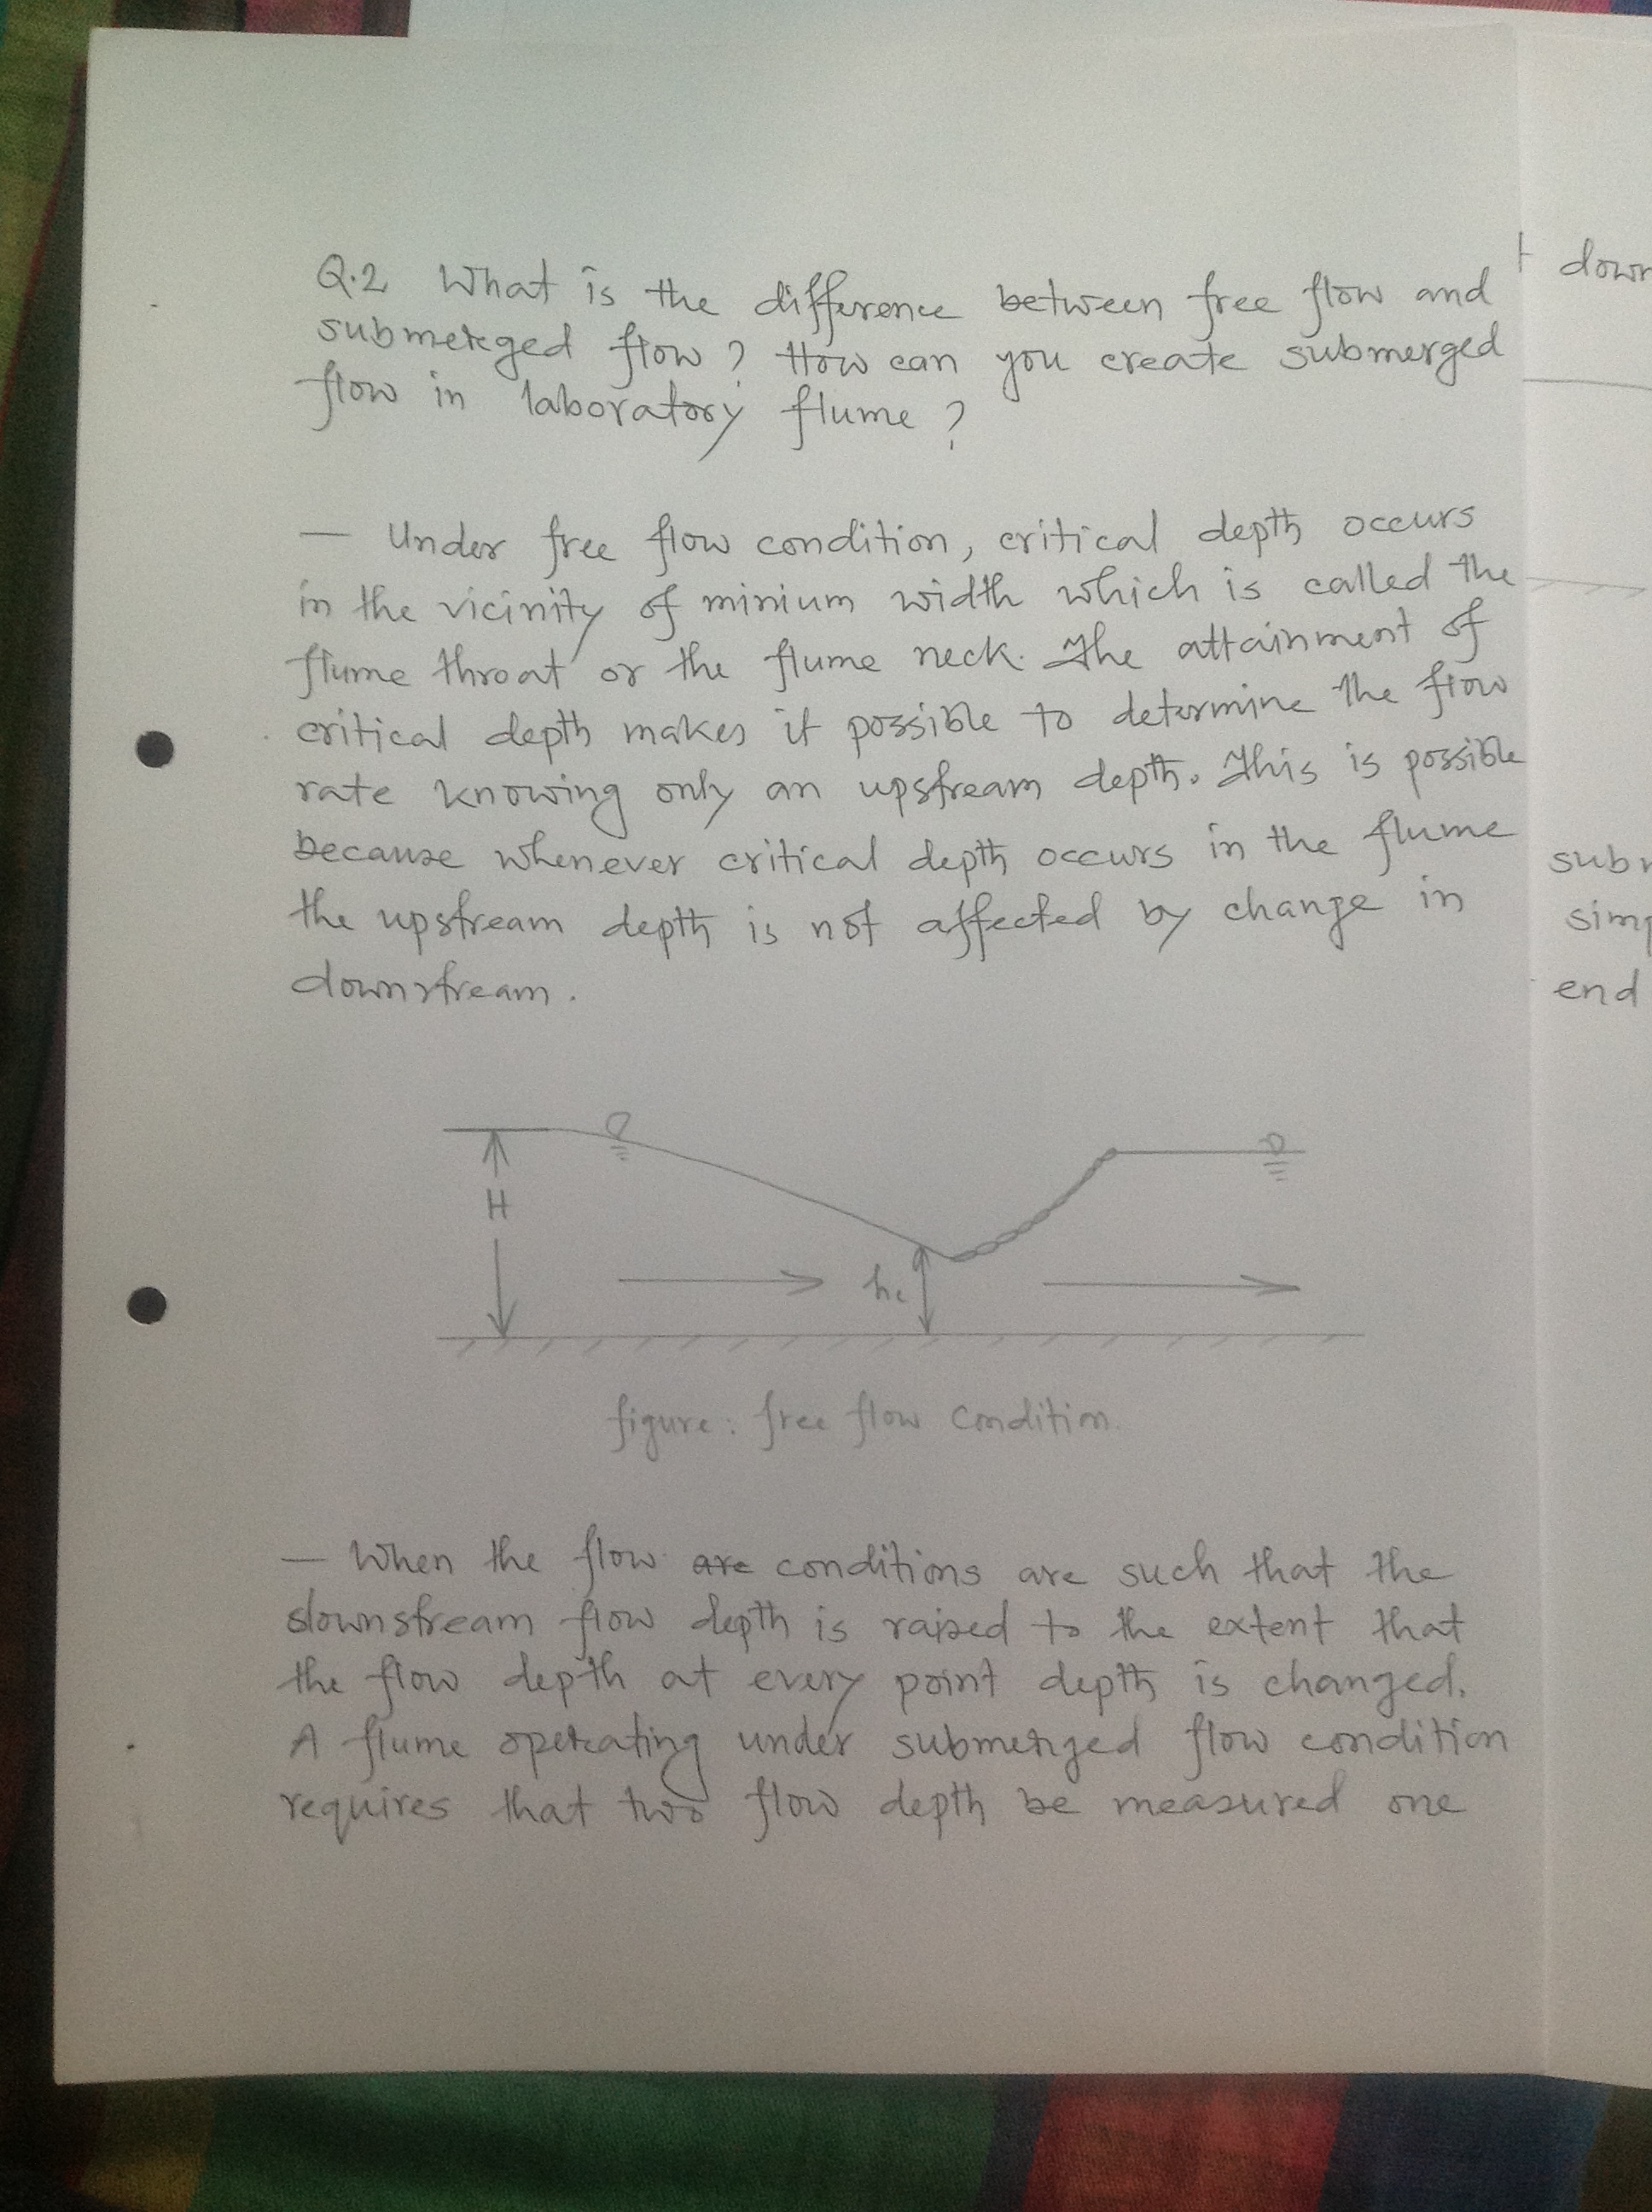 Q.2 What is the difference between free flow and
submerged flow? How can you create submerged
flow in laboratory flume?
— Under free flow condition, critical depth occurs
in the vicinity of minium width which is called the
flume throat or the flume neck. The attainment of
critical depth makes it possible to determine the flow
rate knowing only an upstream depth. This is possible
because whenever critical depth occurs in the flume
the upstream depth is not affected by change in
downstream.
H
hc
figure: free flow condition.
— When the flow are conditions are such that the
downstream flow depth is raised to the extent that
the flow depth at every point depth is changed.
A flume operating under submerged flow condition
requires that two flow depth be measured one
end